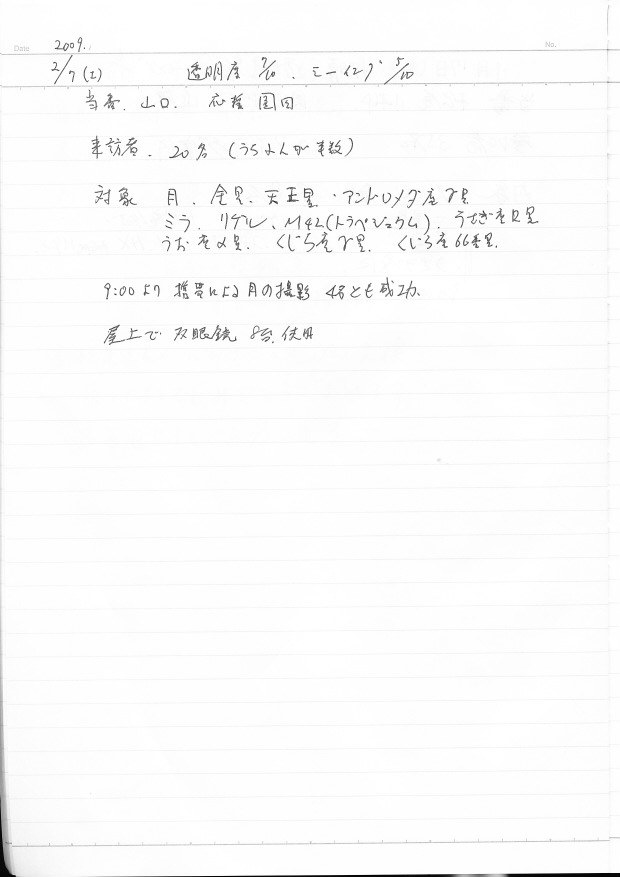 Date 2009. No.
2/7(土) 透明度 7/10. シーイング 5/10
当番. 山口. 応援 園田
来訪者. 20名 (うち よんが 半数)
対象 月. 金星. 天王星・アンドロメダ座γ星
ミラ. リゲル、M42(トラペジュウム). うさぎ座R星
うお座α星. くじら座γ星. くじら座66番星.
9:00より 携帯による月の撮影 4名とも成功.
屋上で 双眼鏡 8台. 使用